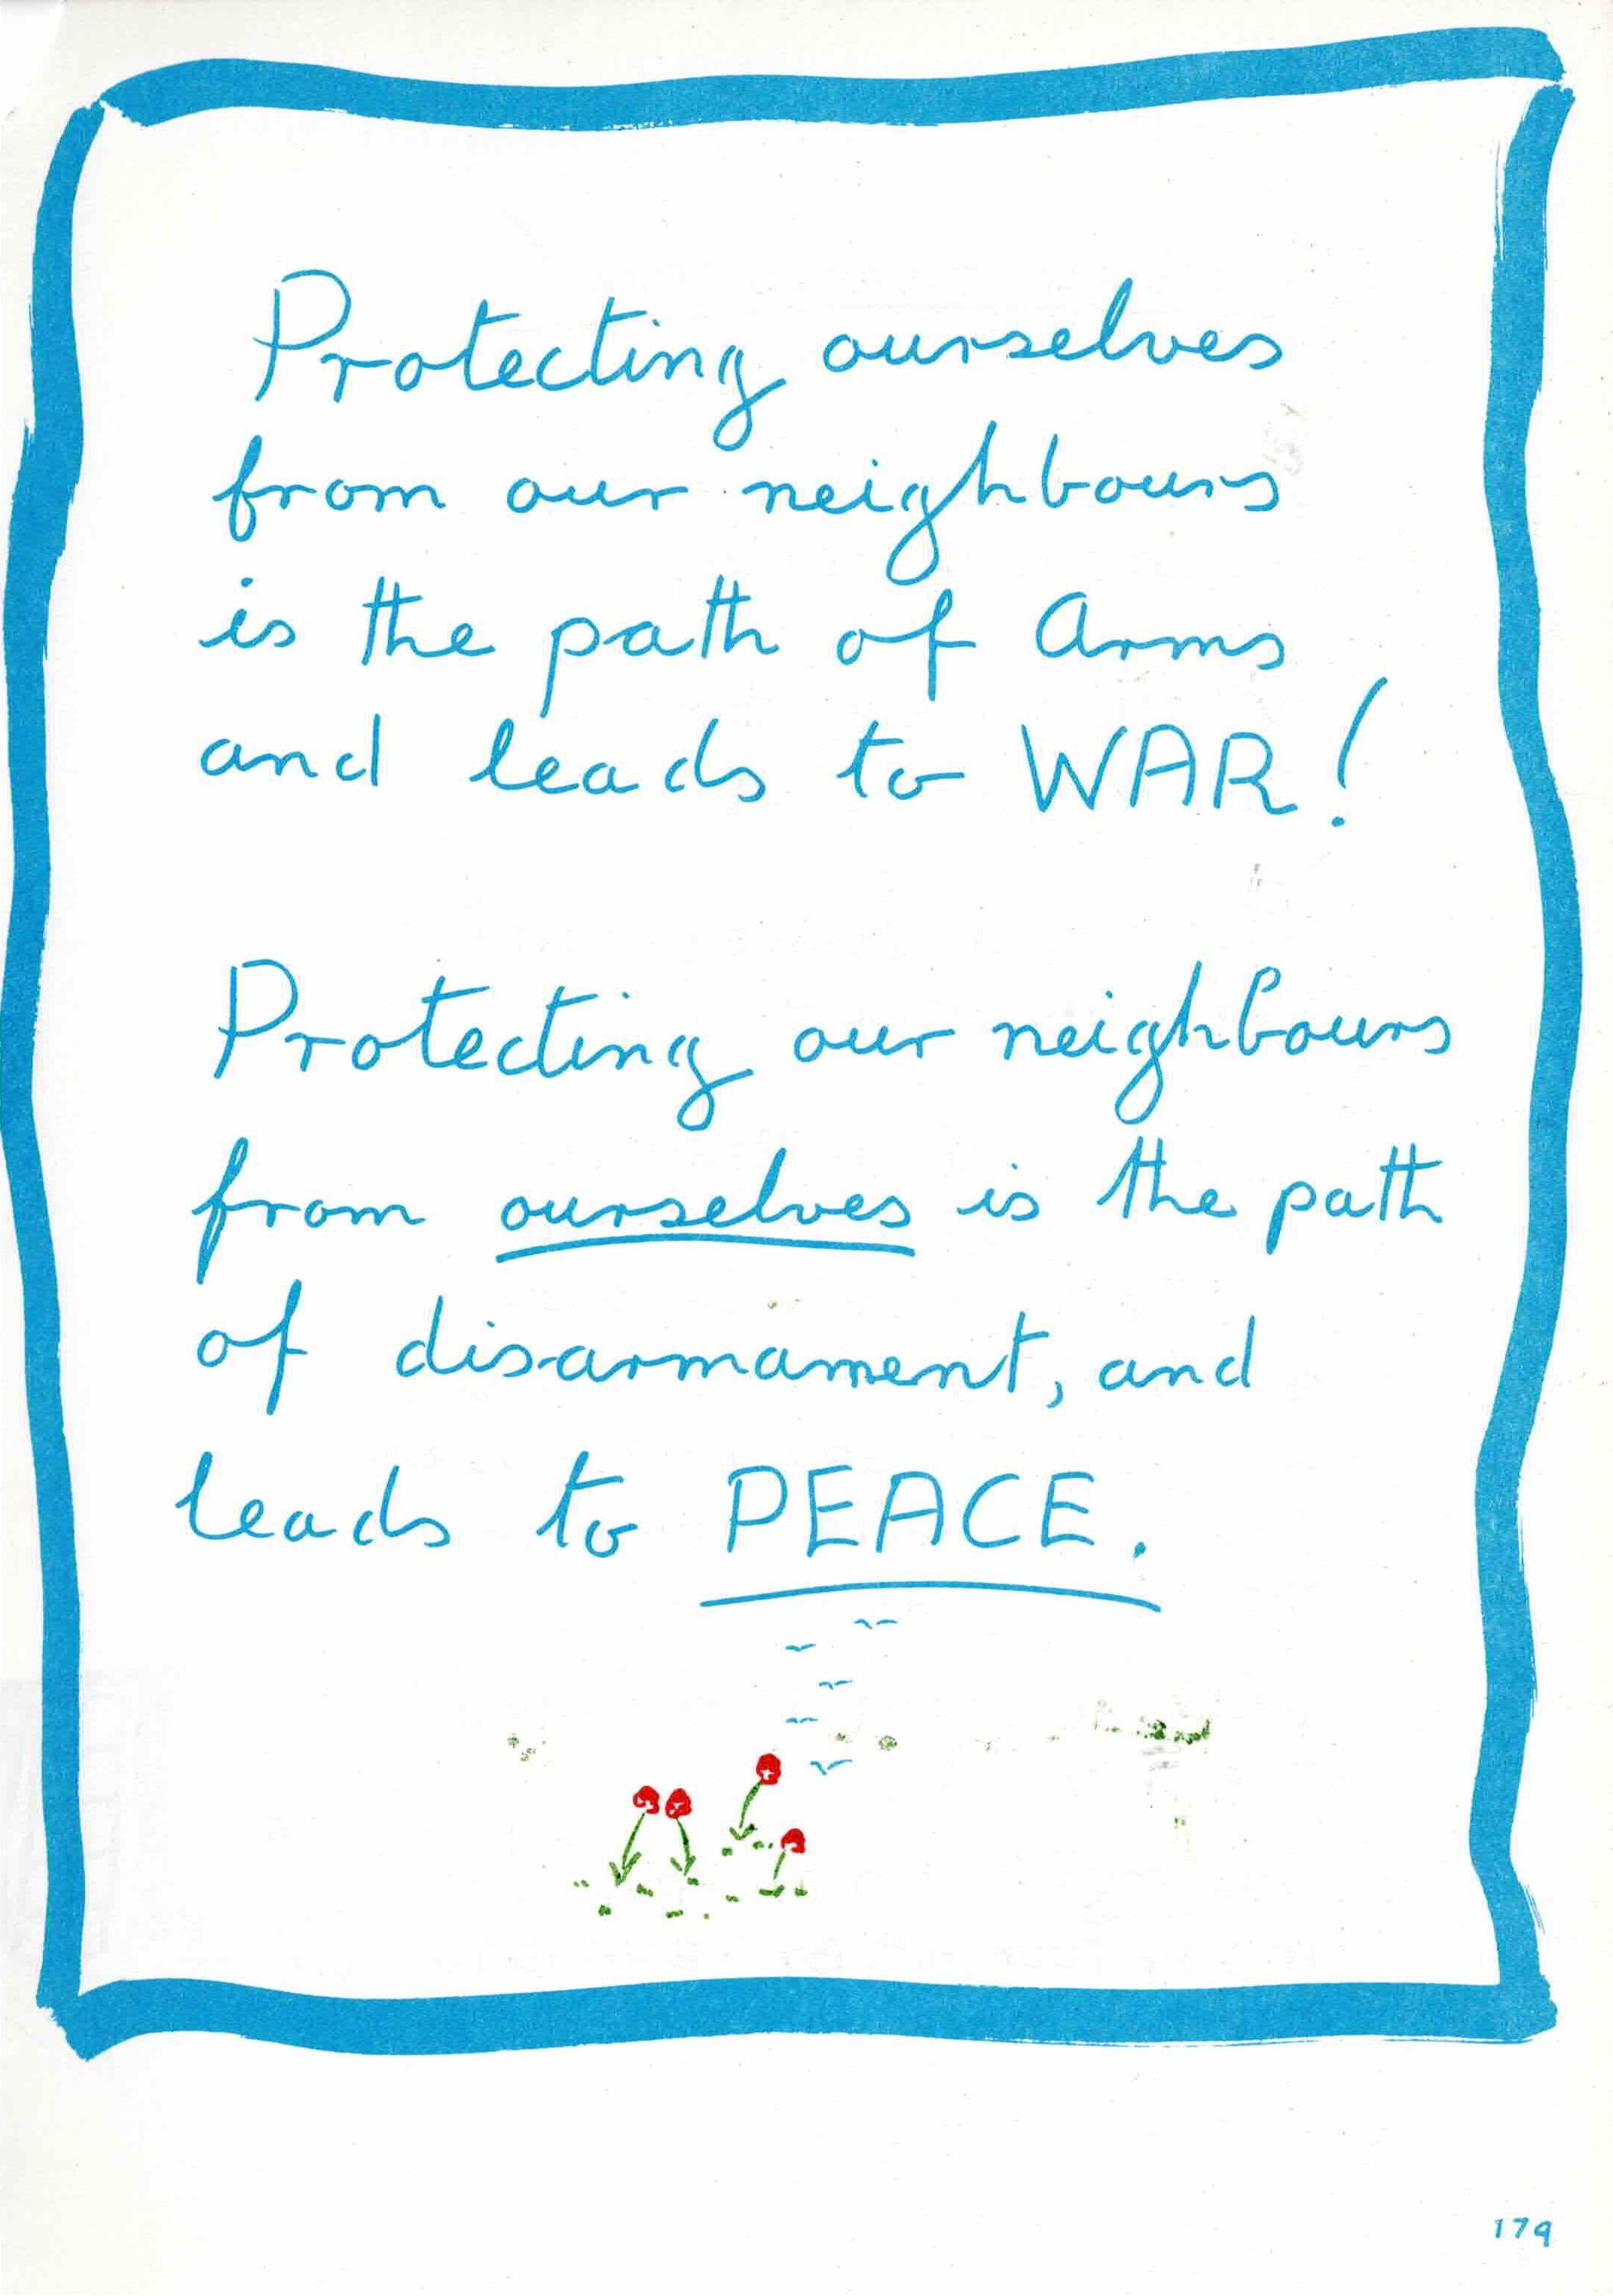 Protecting ourselves
from our neighbours
is the path of Arms
and leads to WAR!
Protecting our neighbours
from ourselves is the path
of disarmament, and
leads to PEACE.
179